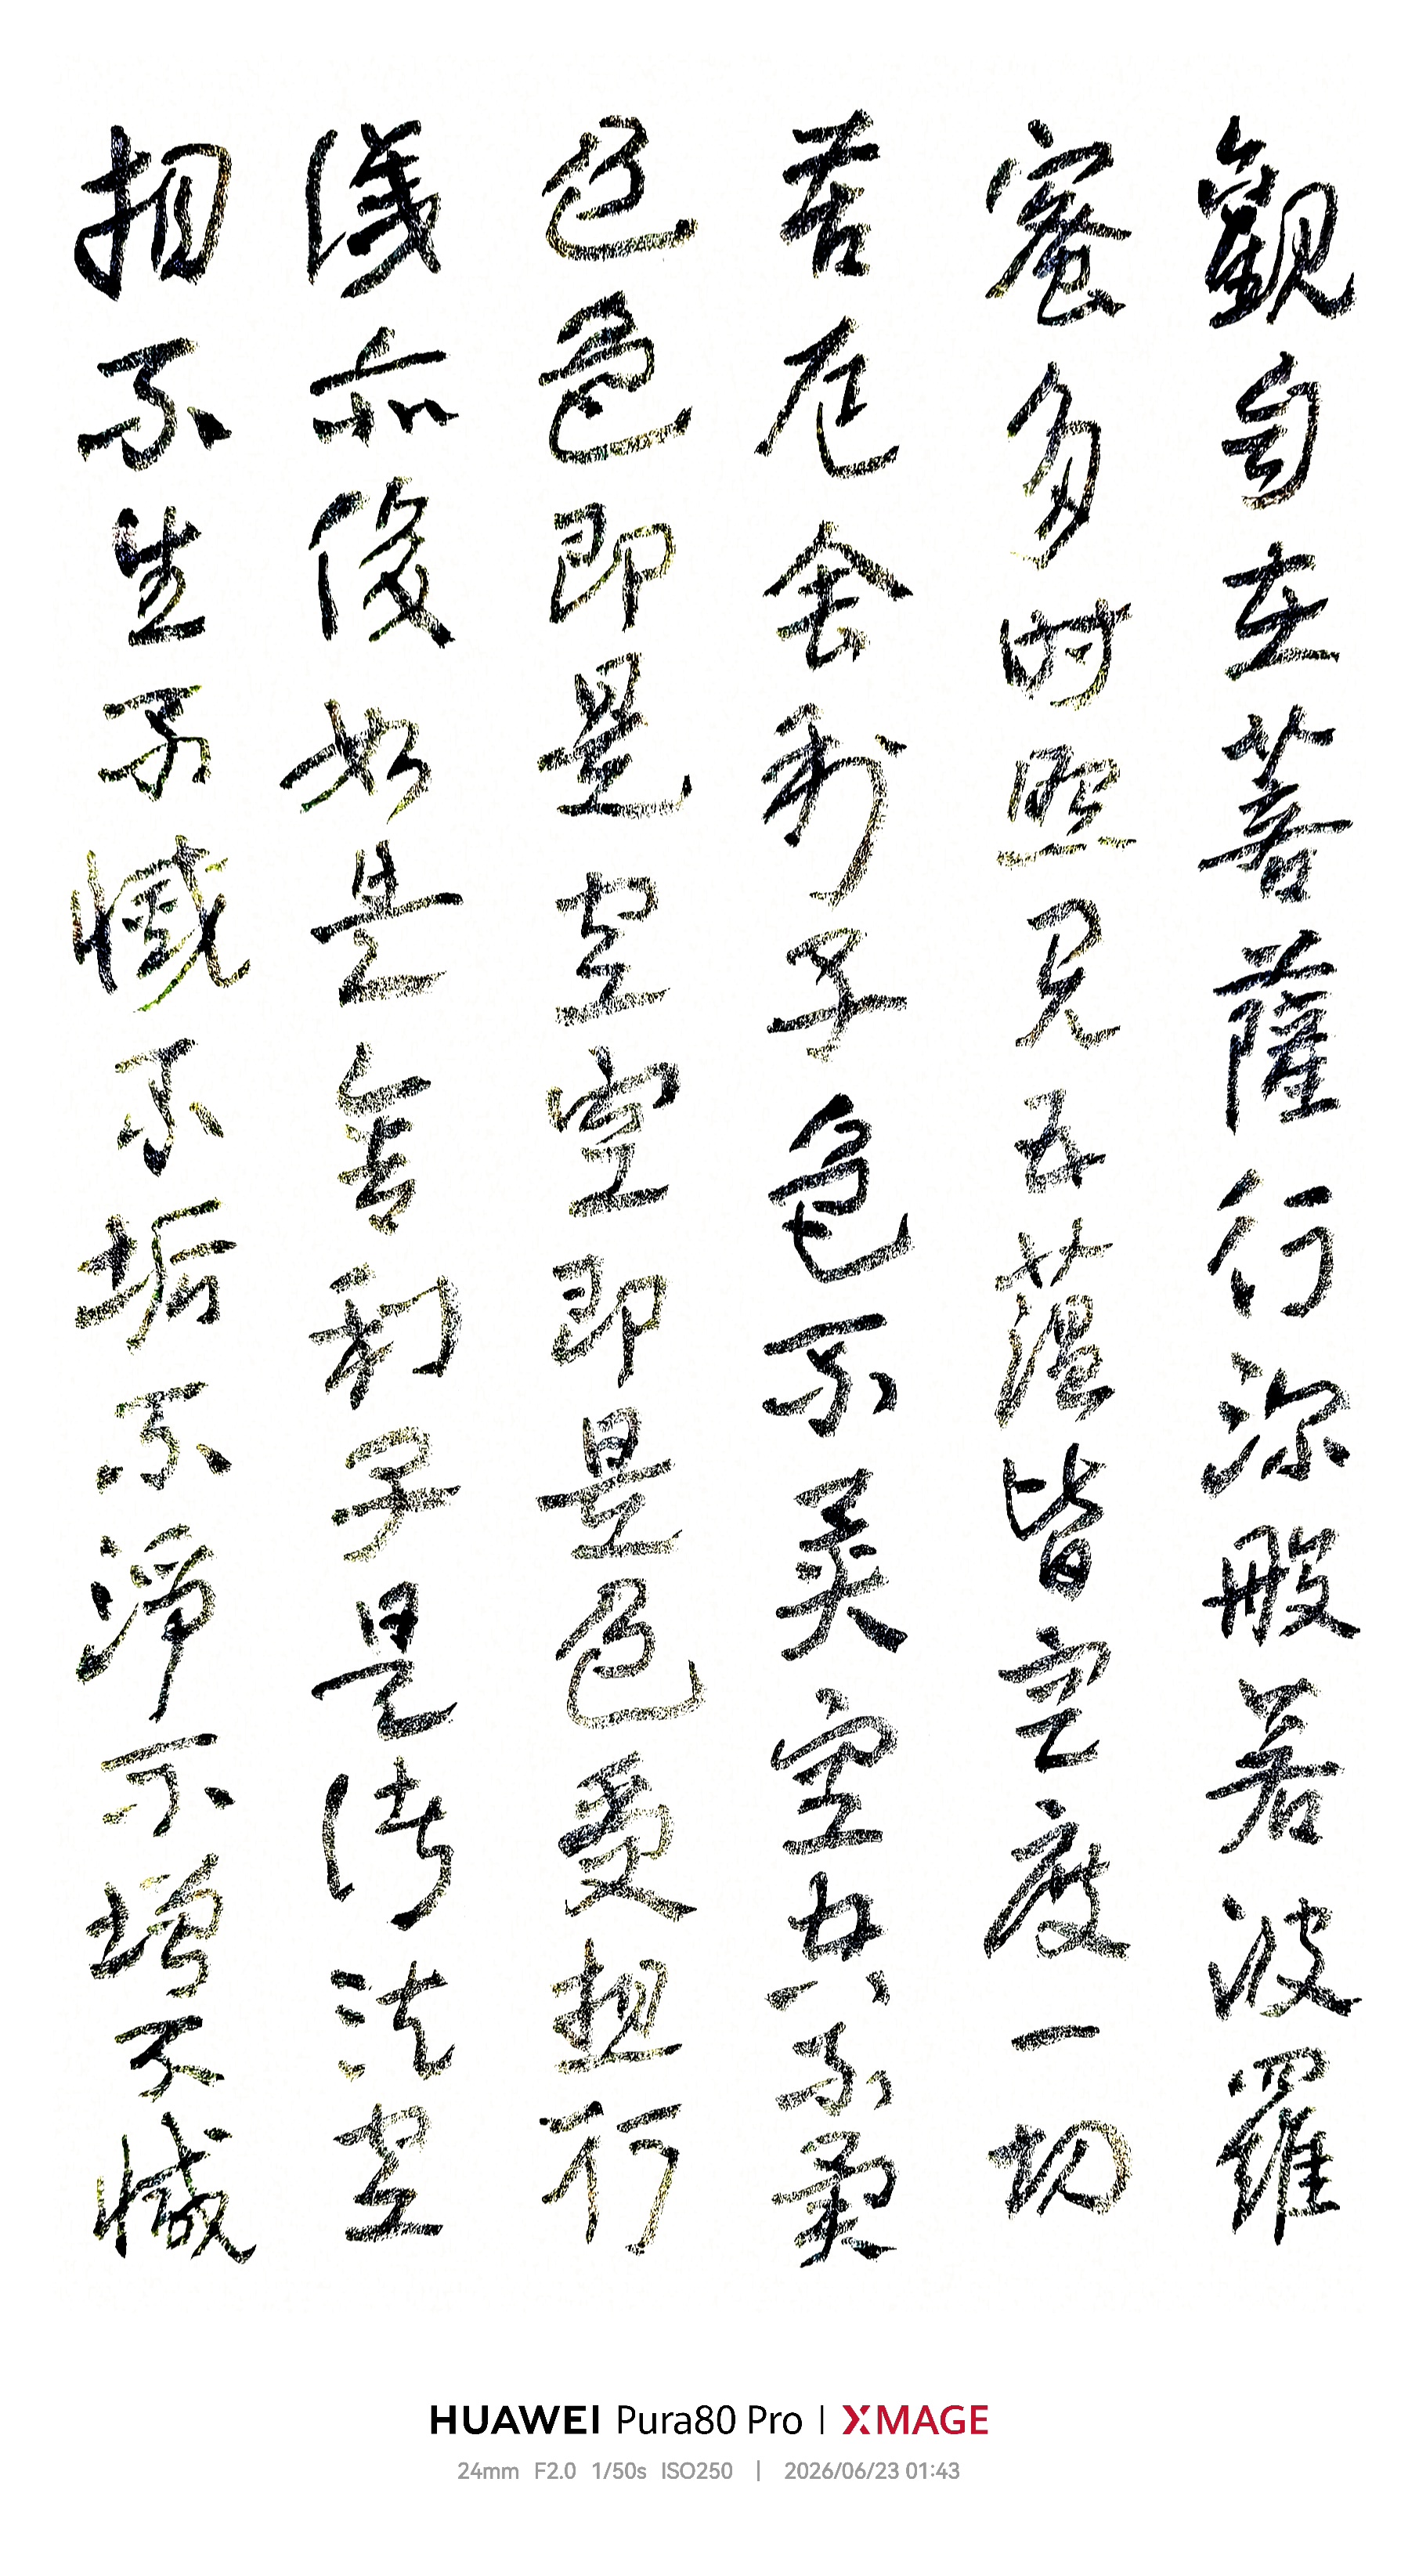 觀自在菩薩行深般若波羅
蜜多时照見五蘊皆空度一切
苦厄舍利子色不異空空不異
色色即是空空即是色受想行
識亦復如是舍利子是諸法空
相不生不滅不垢不淨不增不減
HUAWEI Pura80 Pro | XMAGE
24mm F2.0 1/50s ISO250 | 2026/06/23 01:43